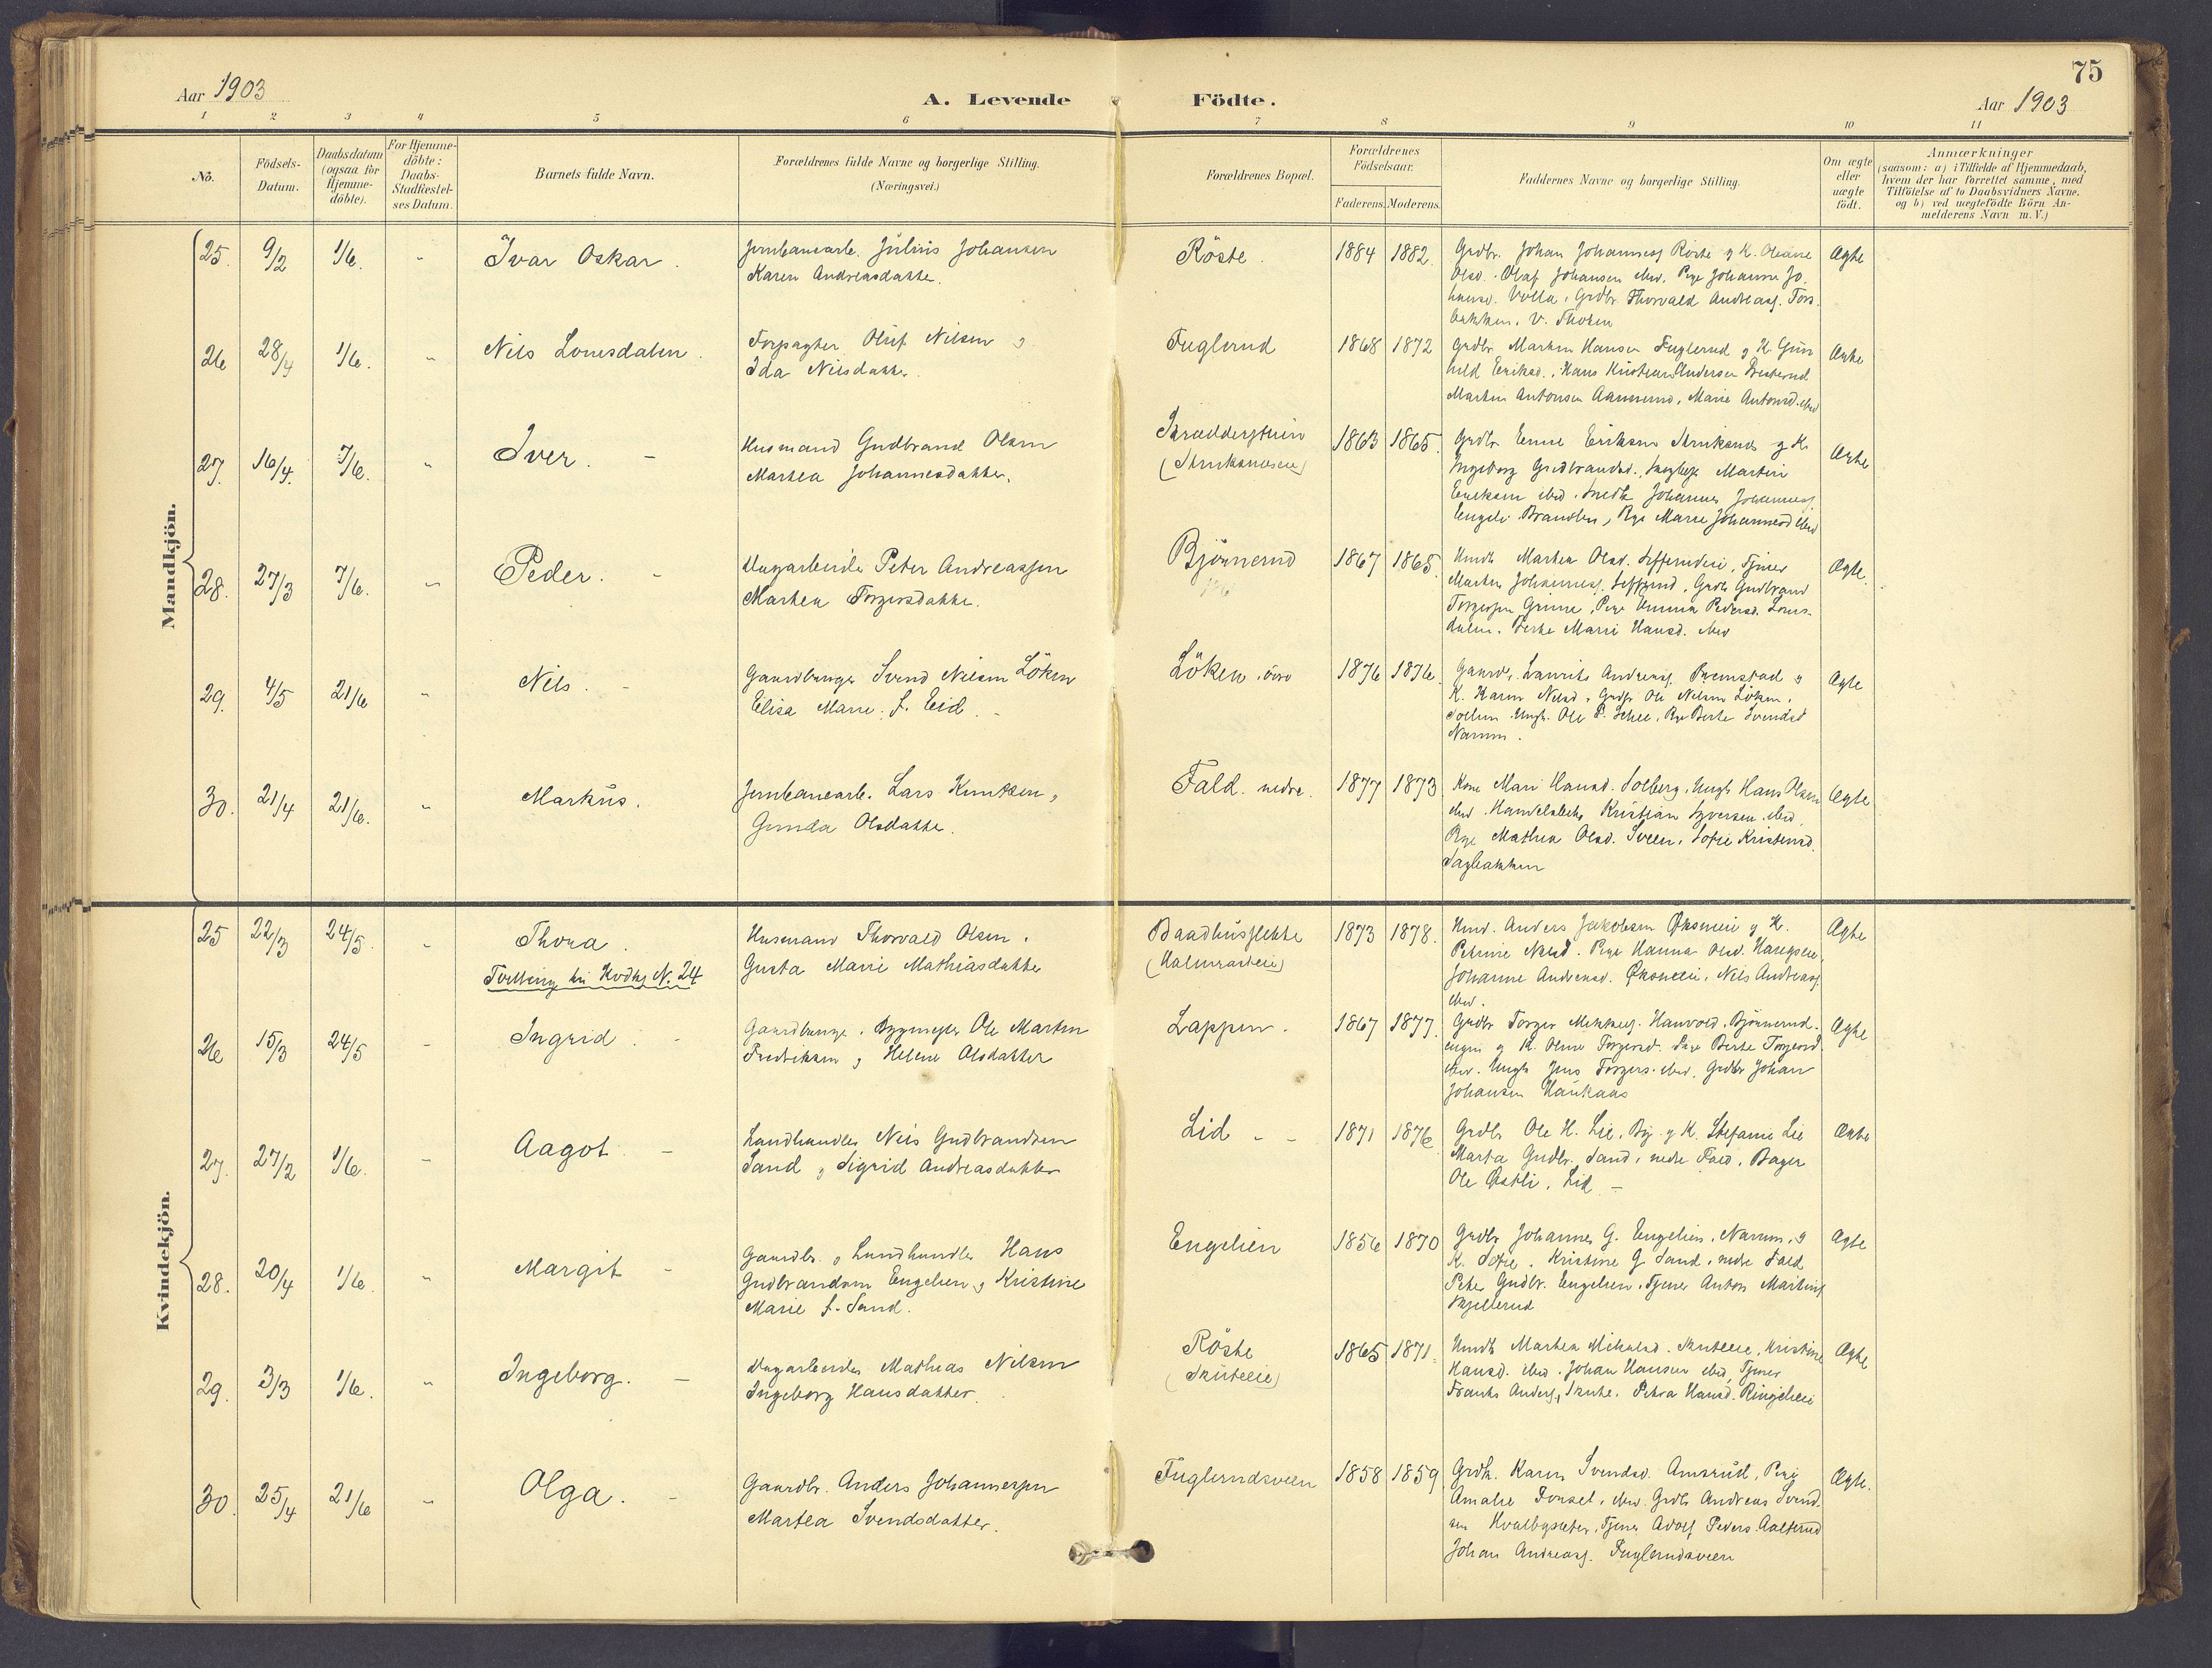 75
Aar 1903
A. Levende Födte.
Aar 1903
1 2 3 4 5 6 7 8 9 10 11
No.
Födsels-
Datum.
Daabsdatum
(ogsaa for
Hjemme-
döbte).
For Hjemme-
döbte:
Daabs-
Stadfæstel-
ses Datum.
Barnets fulde Navn.
Forældrenes fulde Navne og borgerlige Stilling.
(Næringsvei.)
Forældrenes Bopæl.
Forældrenes
Födselsaar.
Faderens. Moderens.
Faddernes Navne og borgerlige Stilling.
Om ægte
eller
uægte
födt.
Anmærkninger
(saasom: a) i Tilfælde af Hjemmedaab,
hvem der har forrettet samme, med
Tilföielse af to Daabsvidners Navne.
og b) ved uægtefödte Börn An-
melderens Navn m. V.)
Mandkjön.
25. 9/2 1/6. " Ivar Oskar.
Jernbanearb. Julius Johansen
Karen Andreasdatter.
Röste. 1884 1882.
Grdbr. Johan Johanness Röste g K. Oleane
Olsd. Olaf Johansen ibid. Pige Johanne Jo.
hansd. Volla, Grdbr Thorvald Andreass. Fos
bakken. V. Thoten
Ægte
26 28/4 1/6. " Nils Lonesdalen.
Forpagter Oluf Nilsen g
Ida Nilsdatter.
Fuglerud 1868 1872
Grdbr Martin Hansen Fuglerud g K. Gun
hild Eriksd., Hans Kristian Andersen
Martin Antonsen Aamerud, Marie Antonsd. ibid
Ægte
27. 16/4. 7/6. " Iver. -
Husmand Gudbrand Olsen
Marthea Johannesdatter.
Skræddersteien
1863 1865.
Grdbr Erik Eriksen g K.
Ingeborg Gudbrandsd. Martin
Eriksen ibid. Johannes Johanness
Brandbu, Pige Marie Johannesd ibid
Ægte
28. 27/3 7/6. " Peder. -
Dagarbeider Peter Andreassen
Marthea Torgersdatter.
Björnerud 1867 1865.
Marthea Olsd. Tjener
Martin Johanness. Grdbr Gudbrand
Torgersen Grime, Pige Emma Pedersd. Lones-
dalen. Marie Hansd. ibid
Ægte.
29. 4/5 21/6 " Nils. -
Gaardbruger Svend Nilsen Löken
Elisa Marie f. Eid. -
Löken övre 1876 1876.
Gaardbr. Laurits Andreass. g
K. Karen Nilsd, Grdbr Ole Nilsen Löken,
Ungk. Ole P. Schee. Pige Berte Svendsd
Narum.
Ægte
30. 21/4 21/6. " Markus.
Jernbanearb. Lars Knutsen,
Gunda Olsdatter.
Fald. nedre. 1877 1873
Kone Mari Hansd. Solberg, Ungk Hans Olsen
ibid. Handelsbetj Kristian Syversen ibid.
Pige Mathea Olsd. Sveen, Sofie Kristensd.
Sagbakken
Ægte
Kvindekjön.
25 22/3 24/5. " Thora.
Tvilling til Kvdkj N. 24
Husmand Thorvald Olsen.
Gusta Marie Mathiasdatter
Baadhusslette
1873 1878.
Husmd. Anders Jakobsen g K.
Petrine Nilsd. Pige Hanna Olsd.
Johanne Andersd. Nils Andreass.
ibid.
Ægte
26 15/3 24/5 - Ingrid. -
Gaardbruger. Bygmester Ole Martin
Fredriksen g Helene Olsdatter
Lappen. 1867 1877.
Grdbr Torger Mikkels. Björnerud.
engen g K. Oline Torgersd. Pige Berte Torgersd.
ibid. Ungk Jens Torgers. ibid. Grdbr Johan
Johansen Haukaas
Ægte
27. 27/2 1/6. - Aagot -
Landhandler Nils Gudbrandsen
Sand g Sigrid Andreasdatter
Lid - - 1871 1876
Grdbr Ole H. Lie, g K. Stefanie Lie
Marta Gudbr. Sand, nedre Fald, Bager
Ole Østli. Lid -
Ægte
28. 20/4 1/6. " Margit -
Gaardbr. g Landhandler Hans
Gudbrandsen Engelien g Kristine
Marie f. Sand.
Engelien 1856 1870
Grdbr Johannes G. Engelien, Narum, g
K. Sofie. Kristine G Sand, nedre Fald
Peter Gudbr. Engelien. Tjener Anton Martins
Ægte
29. 3/3 1/6. " Ingeborg. -
Dagarbeider Mathias Nilsen
Ingeborg Hansdatter.
Röste
(Skuteeie)
1865 1871.
Marthea Mikkelsd. Skuteeie, Kristine
Hansd. ibid. Johan Hansen ibid, Tjener
Frants Anders. Skute. Petra Hansd. Ringelieie
Ægte
30. 25/4 21/6 " Olga. -
Gaardbr. Anders Johannessen
Martea Svendsdatter.
Fuglerudsveen 1858 1859
Grdk. Karen Svendsd. Amsrud, Pige
Amalie Fonsel, ibid. Grdbr Andreas Svend.
sen Hvalbysæter, Tjener Adolf Peders. Aalterud
Johan Andreass. Fuglerudsveen
Ægte.